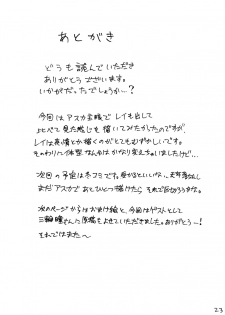 あとがき
どうも読んでいただき
ありがとうございます。
いかがだったでしょうか…？
今回はアスカ主観でレイも出して
比べて見た感じを描いてみたかったのですが、
レイは表情とか描くのがとてもむずかしいです。
そのわりに体型なんかはかなり変えちゃいましたけど…
次回の予定は冬コミです。受かるといいな…
まだアスカであとひとつ描けたら それで区切ろうかな。
次のページからはおまけ絵と、今回はゲストとして
さんに原稿をよせていただきました。ありがとう～！
それではまた～
23